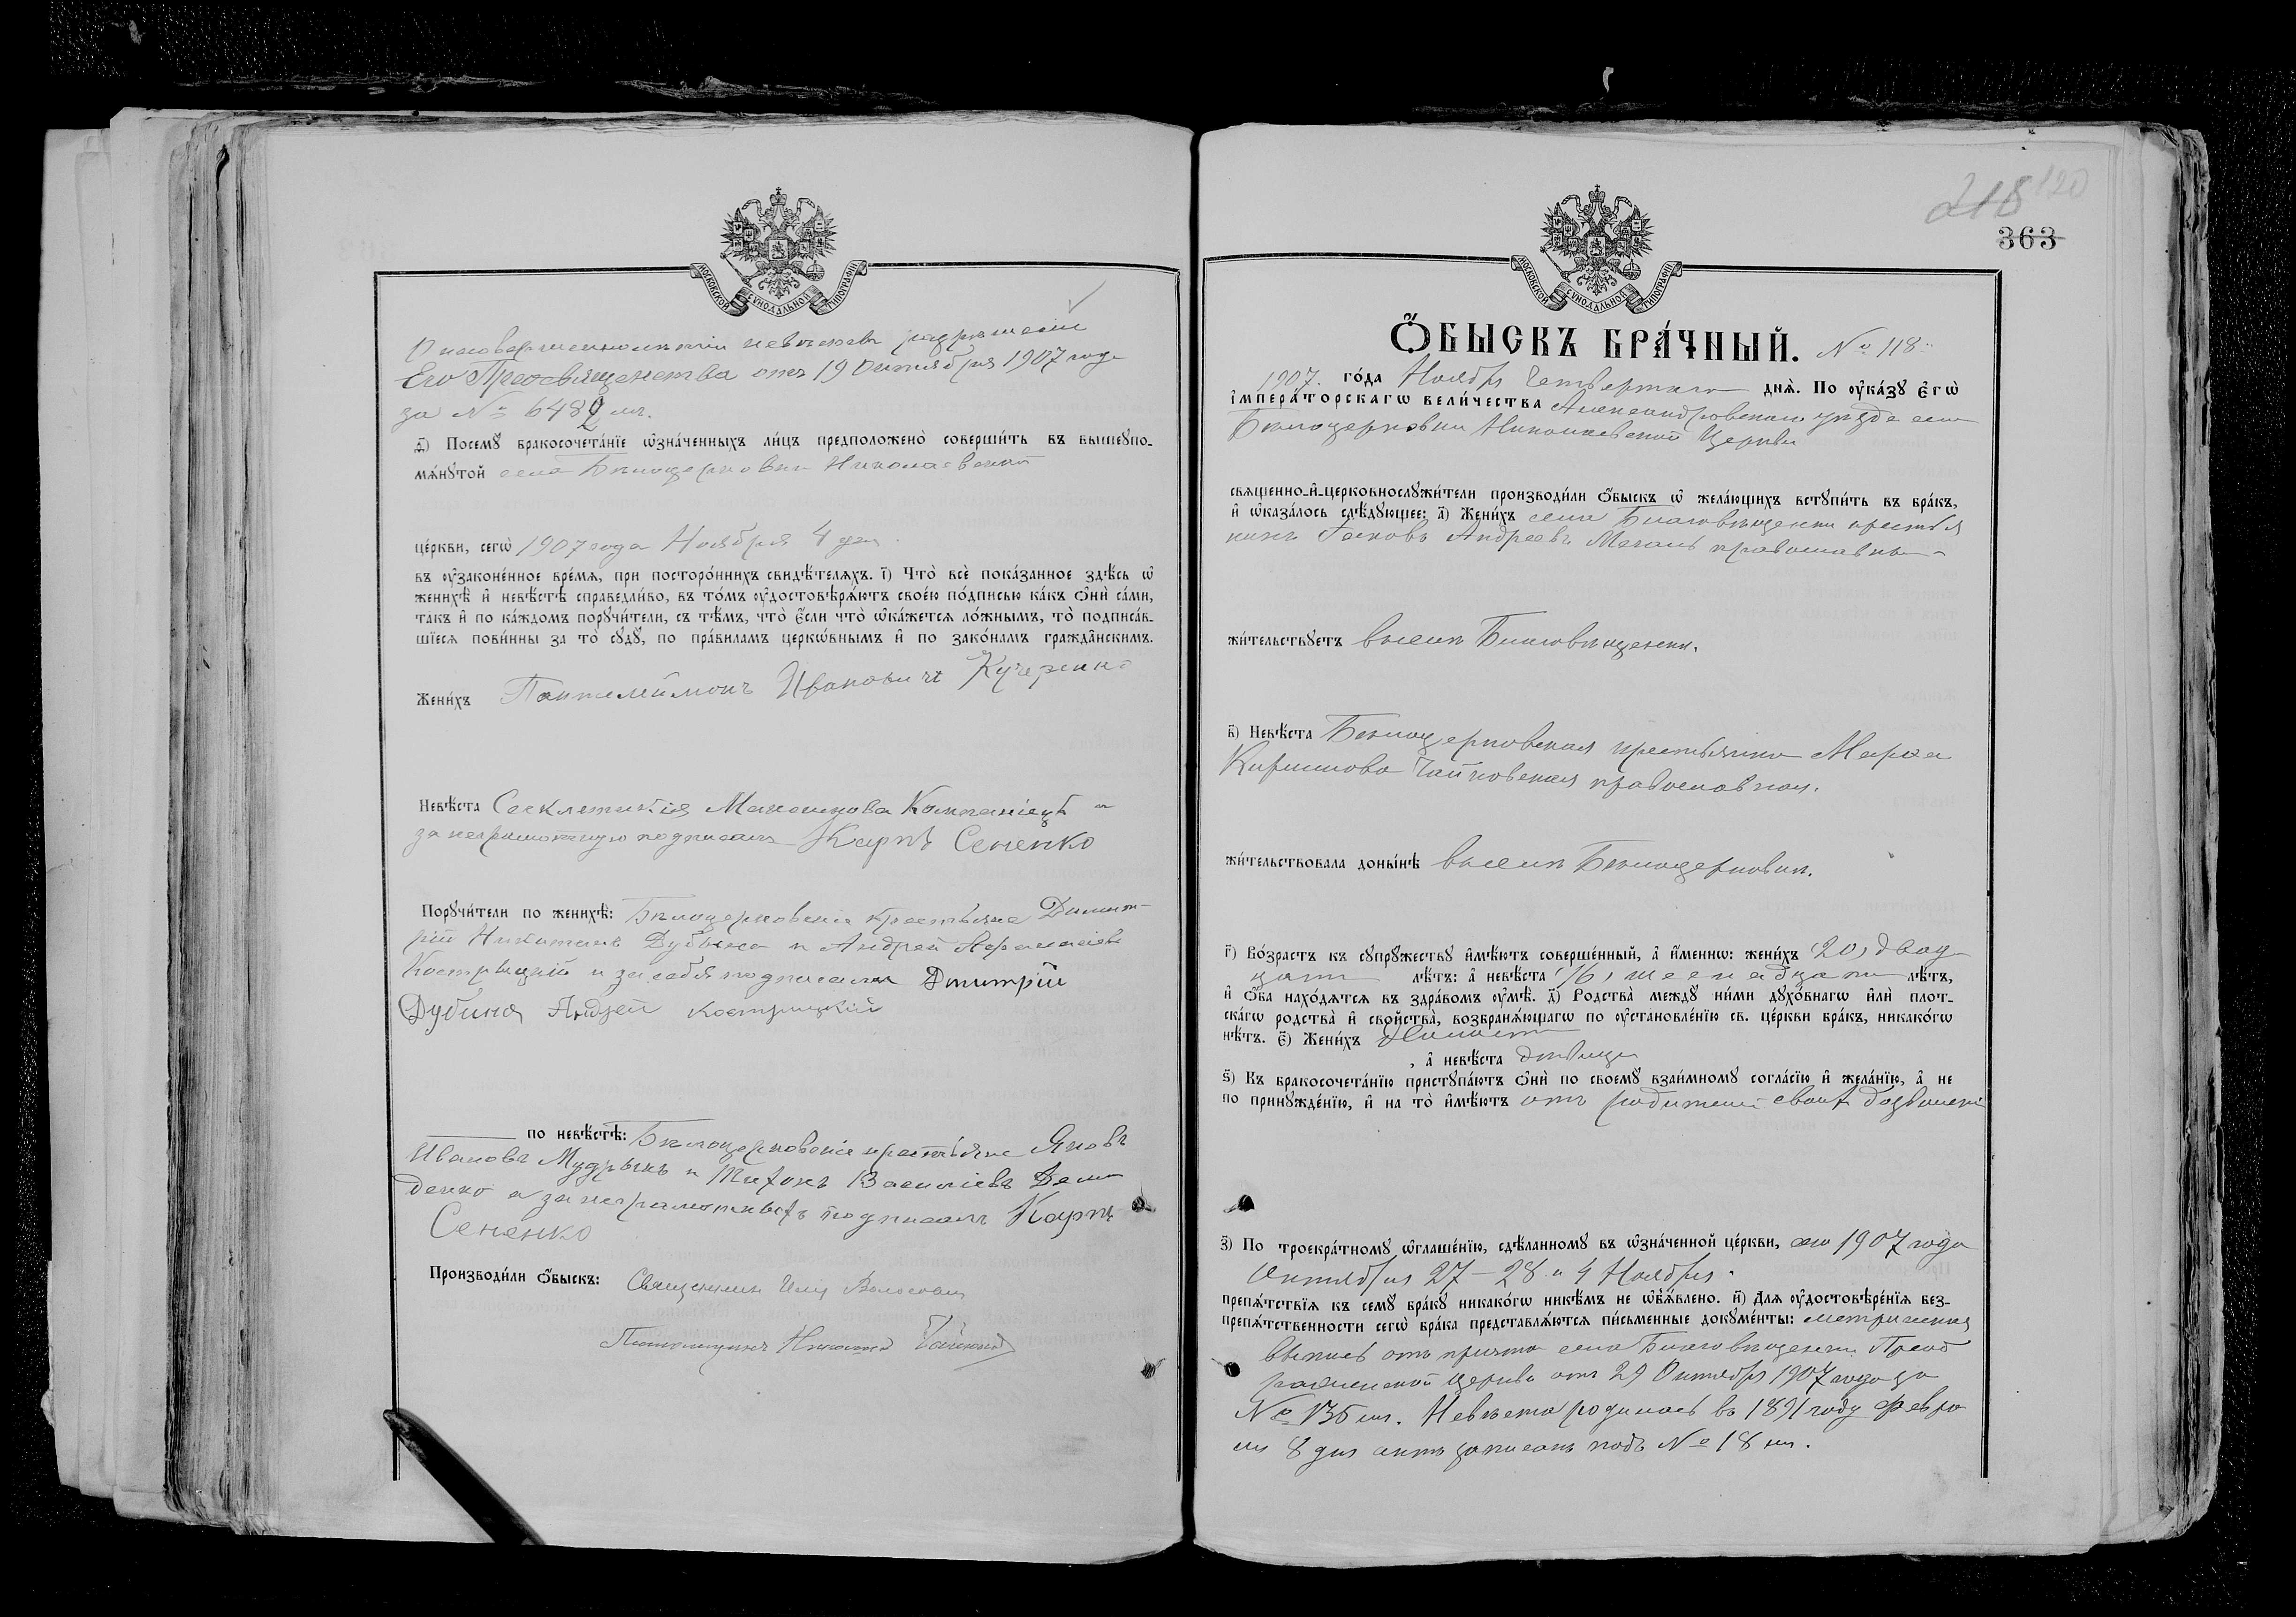 МОСКОВСКОЙ СѴНОДАЛЬНОЙ ТИПОГРАФІИ
О несовершеннолѣтіи невѣсты разрѣшеніе
Его Преосвященства отъ 19 Октября 1907 года
за № 6482 мъ.
ѳ҃) Посемꙋ̀ бракосочета́нїе ѡ҆зна́ченныхъ ли́цъ предположено̀ соверши́ть въ вышеꙋпо-
мѧ́нꙋтой села Бѣлоцерковки Николаевской
це́ркви, сегѡ̀ 1907 года Ноября 4 дня.
въ ᲂу҆законе́нное вре́мѧ, при посторо́ннихъ свидѣ́телѧхъ. і҃) Что̀ всѐ пока́занное здѣ́сь ѡ҆
женихѣ̀ и҆ невѣ́стѣ справедли́во, въ то́мъ ᲂу҆достовѣрѧ́ютъ свое́ю по́дписью ка́къ ѻ҆нѝ са́ми,
та́къ и҆ по ка́ждомъ порꙋчи́тели, съ тѣ́мъ, что̀ є҆́сли что̀ ѡ҆ка́жется ло́жнымъ, то̀ подписа́в-
шїеся пови́нны за то̀ сꙋдꙋ̀, по пра́виламъ церкѡ́внымъ и҆ по зако́намъ гражда́нскимъ.
Жени́хъ Пантелеймонъ Ивановичъ Кучеренко
Невѣ́ста Секлетикія Максимова Компаніецъ а
за неграмотную подписалъ Карпъ Сененко
Порꙋчи́тели по женихѣ̀: Бѣлоцерковскіе крестьяне Димит-
рій Никитинъ Дубына и Андрей Афанасіевъ
Кострыцкій и за себя подписали Дмитрій
Дубина Андрей Кострицкій
по невѣ́стѣ: Бѣлоцерковскіе крестьяне Яковъ
Ивановъ Мудрыкъ и Тихонъ Васильевъ
а за неграмотныхъ подписалъ Карпъ
Сененко
Производи́ли ѻ҆́быскъ: Священникъ
Псаломщикъ Николай
218 120
363
МОСКОВСКОЙ СѴНОДАЛЬНОЙ ТИПОГРАФІИ
Ѻ҆́БЫСКЪ БРА́ЧНЫЙ. № 118.
1907. го́да Ноября четвертаго днѧ̀. По ᲂу҆ка́зꙋ Є҆гѡ̀
І҆мпера́торскагѡ вели́чества Александровскаго уѣзда села
Бѣлоцерковки Николаевской Церкви
свѧще́нно-и҆-церковнослꙋжи́тели производи́ли ѻ҆́быскъ ѡ҆ жела́ющихъ встꙋпи́ть въ бра́къ,
и҆ ѡ҆каза́лось слѣ́дꙋющее: а҃) Жени́хъ села Благовѣщенки крестья
нинъ Яковъ Андреевъ православный
жи́тельствꙋетъ въ селѣ Благовѣщенки.
в҃) Невѣ́ста Бѣлоцерковская крестьянка Марфа
Кириллова Чайковская православная.
жи́тельствовала доны́нѣ въ селѣ Бѣлоцерковки.
г҃) Во́зрастъ къ сꙋпрꙋ́жествꙋ и҆мѣ́ютъ соверше́нный, а҆ и҆́меннѡ: жени́хъ (20) двад
цати лѣ́тъ: а҆ невѣ́ста (16) шеснадцати лѣ́тъ,
и҆ ѻ҆́ба нахо́дѧтся въ здра́вомъ ᲂу҆мѣ̀. д҃) Родства̀ междꙋ̀ ни́ми дꙋхо́внагѡ и҆лѝ плот-
ска́гѡ родства̀ и҆ сво́йства, возбранѧ́ющагѡ по ᲂу҆становле́нїю св. це́ркви бра́къ, никако́гѡ
нѣ́тъ. є҃) Жени́хъ холостъ
, а҆ невѣ́ста дѣвица
ѕ҃) Къ бракосочета́нїю пристꙋпа́ютъ ѻ҆нѝ по своемꙋ̀ взаи́мномꙋ согла́сїю и҆ жела́нїю, а҆ не
по принꙋжде́нїю, и҆ на то̀ и҆мѣ́ютъ отъ родителей своихъ дозволеніе
з҃) По троекра́тномꙋ ѡ҆глаше́нїю, сдѣ́ланномꙋ въ ѡ҆зна́ченной це́ркви, сего 1907 года
Октября 27–28 и 4 Ноября.
препѧ́тствїѧ къ семꙋ̀ бра́кꙋ никако́гѡ никѣ́мъ не ѡ҆б̾ѧ́влено. и҃) Для ᲂу҆достовѣре́нїѧ без-
препѧ́тственности сегѡ̀ бра́ка представлѧ́ются пи́сьменные докꙋме́нты: метрическая
выпись отъ причта села Благовѣщенки Преоб
раженской церкви отъ 29 Октября 1907 года за
№ 136 мъ. Невѣста родилась въ 1891 году Февра
ля 8 дня актъ записанъ подъ № 18 мъ.